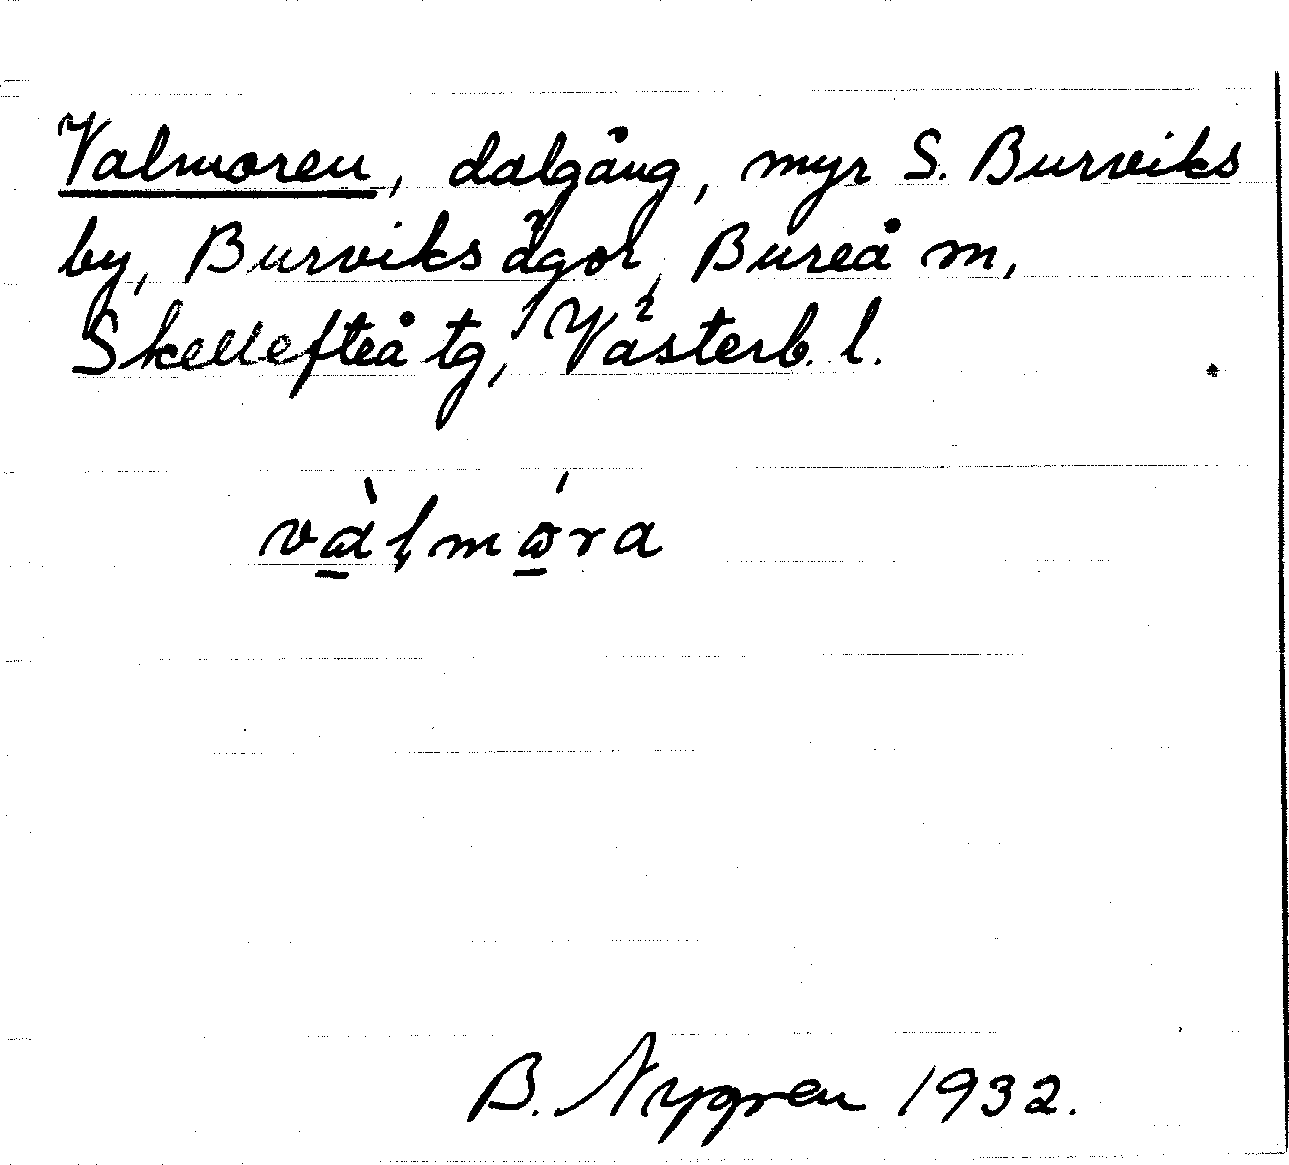 Valmoren, dalgång, myr S. Burviks
by, Burviks ägor, Bureå m,
Skellefteå tg, Västerb. l.
và̱lmó̱ra
B. Nygren 1932.